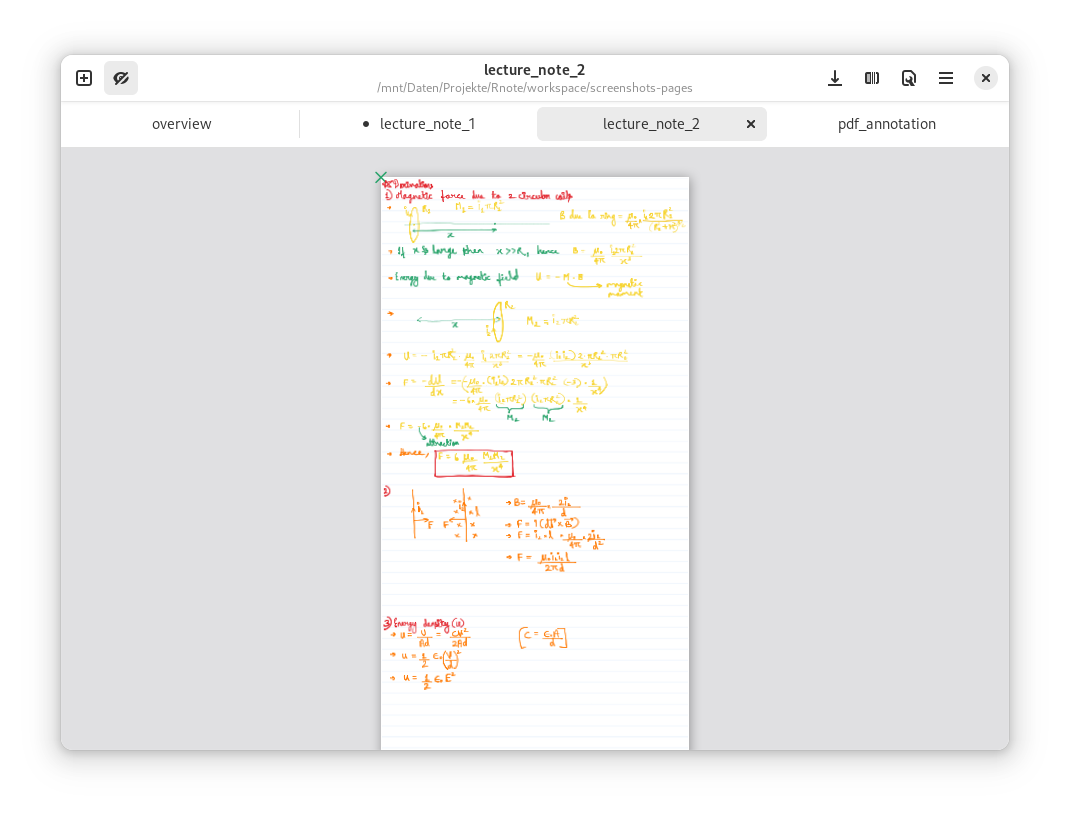 lecture_note_2
/mnt/Daten/Projekte/Rnote/workspace/screenshots-pages
overview
• lecture_note_1
lecture_note_2
pdf_annotation
Derivations
1) Magnetic force due to 2 circular coils
R₁ M₁ = i₁πR₁²
B due to ring = μ₀/4π · i₁2πR₁²/(R₁²+x²)
x
→ If x is large then x>>R, hence B = μ₀/4π i₁2πR₁²/x³
→ Energy due to magnetic field U = -M·B
→ magnetic moment
R₂
x
i₂
M₂ = i₂πR₂²
→ U = - i₂πR₂² · μ₀/4π i₁2πR₁²/x³ = -μ₀/4π (i₁i₂) 2·πR₁²·πR₂²/x³
→ F = -dU/dx
M₁ M₂
→ F = 6·μ₀/4π · M₁M₂/x⁴
attraction
→ Hence, F = 6 μ₀/4π M₁M₂/x⁴
2)
F F
→ B = μ₀/4π · 2i₁/d
→ F =
→ F = μ₀i₁i₂l/2πd
3) Energy density (u)
→ u = U/Ad = CV²/2Ad [C = ε₀A/d]
→ u = 1/2 ε₀(V/d)²
→ u = 1/2 ε₀E²